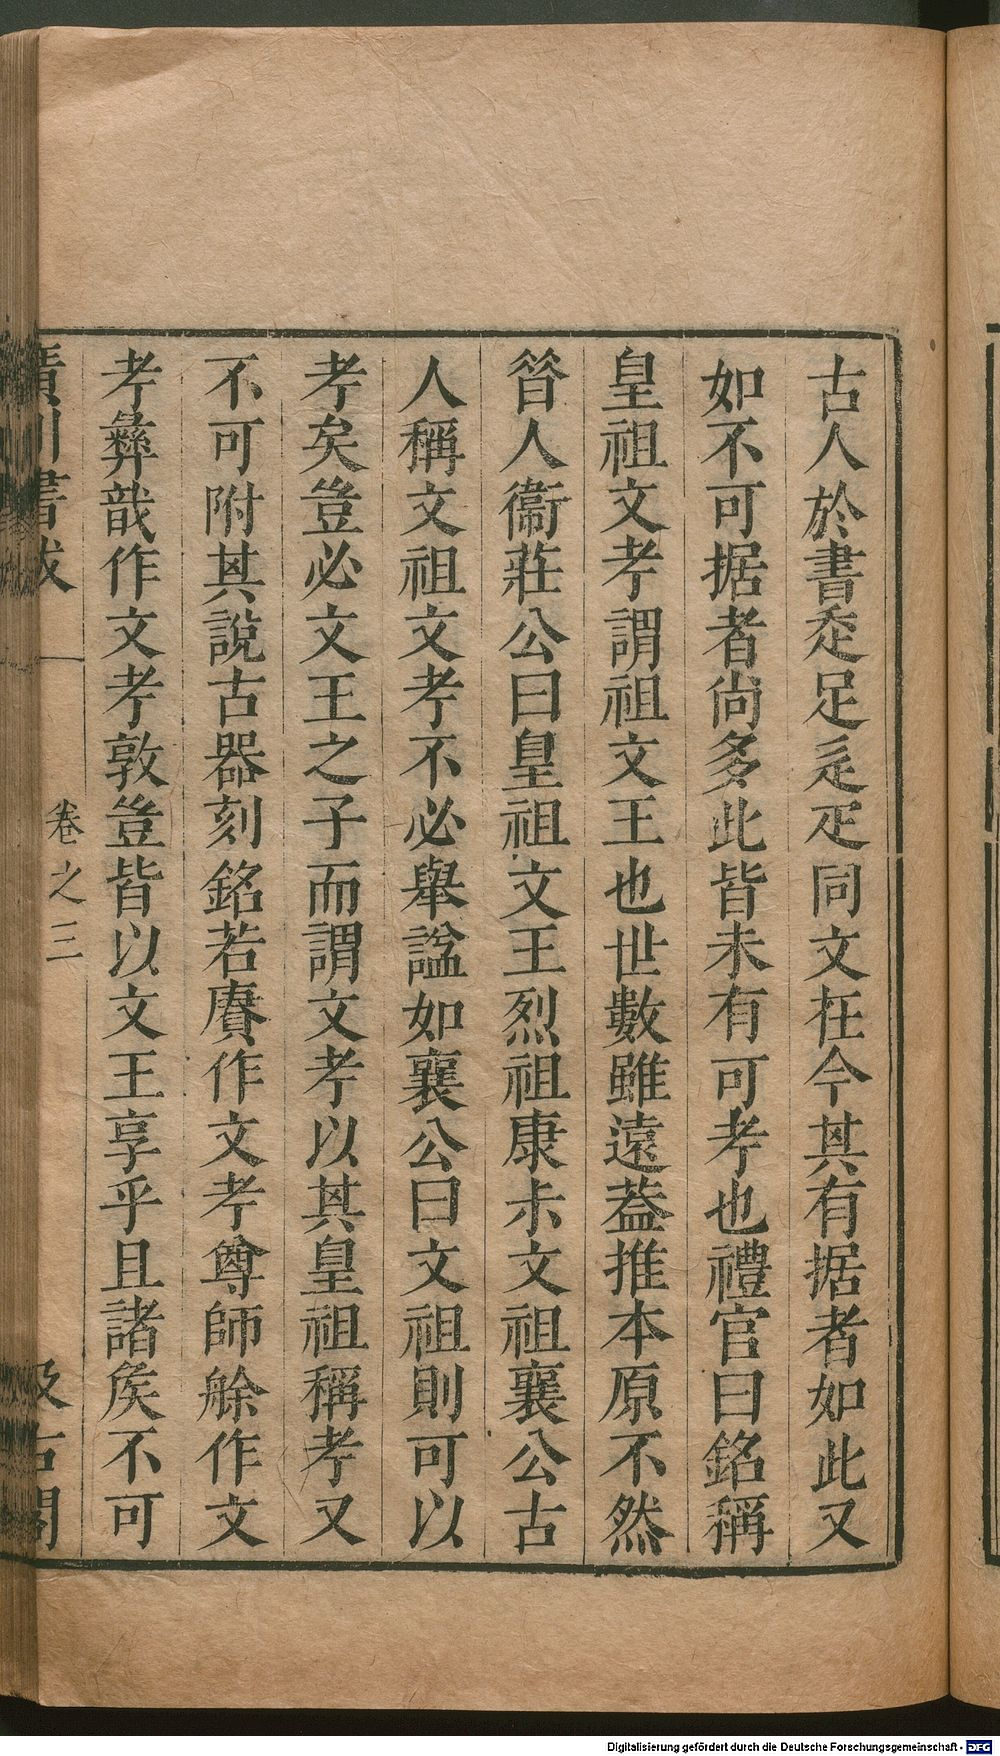 古人於書疋足辵疋同文在今其有据者如此又
如不可据者尚多此皆未有可考也禮官曰銘稱
皇祖文考謂祖文王也世數雖遠蓋推本原不然
晉人衞莊公曰皇祖文王烈祖康尗文祖襄公古
人稱文祖文考不必舉諡如襄公曰文祖則可以
考矣豈必文王之子而謂文考以其皇祖稱考又
不可附其說古器刻銘若賡作文考尊師艅作文
考彝㦲作文考敦豈皆以文王享乎且諸矦不可
廣川書跋
卷之三
汲古閣
Digitalisierung gefördert durch die Deutsche Forschungsgemeinschaft - DFG